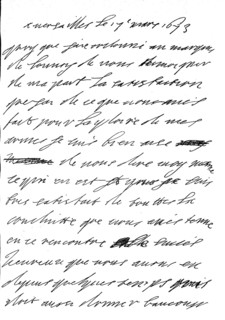 a versailles le 7e mars 1673
quoy que j'aie ordonné au marquis
de louvoy de vous temoigner
de ma part la satisfaction
que j'ay de ce que vous avés
fait pour la gloire de mes
armes je suis bien ayse
de vous dire moy mesme
ce qui en est je suis
tres satisfait de toutte la
conduitte que vous avés tenue
en ce rencontre succés
heureux que vous avés eu
depuis quelques temps
doit vous donner beaucoup